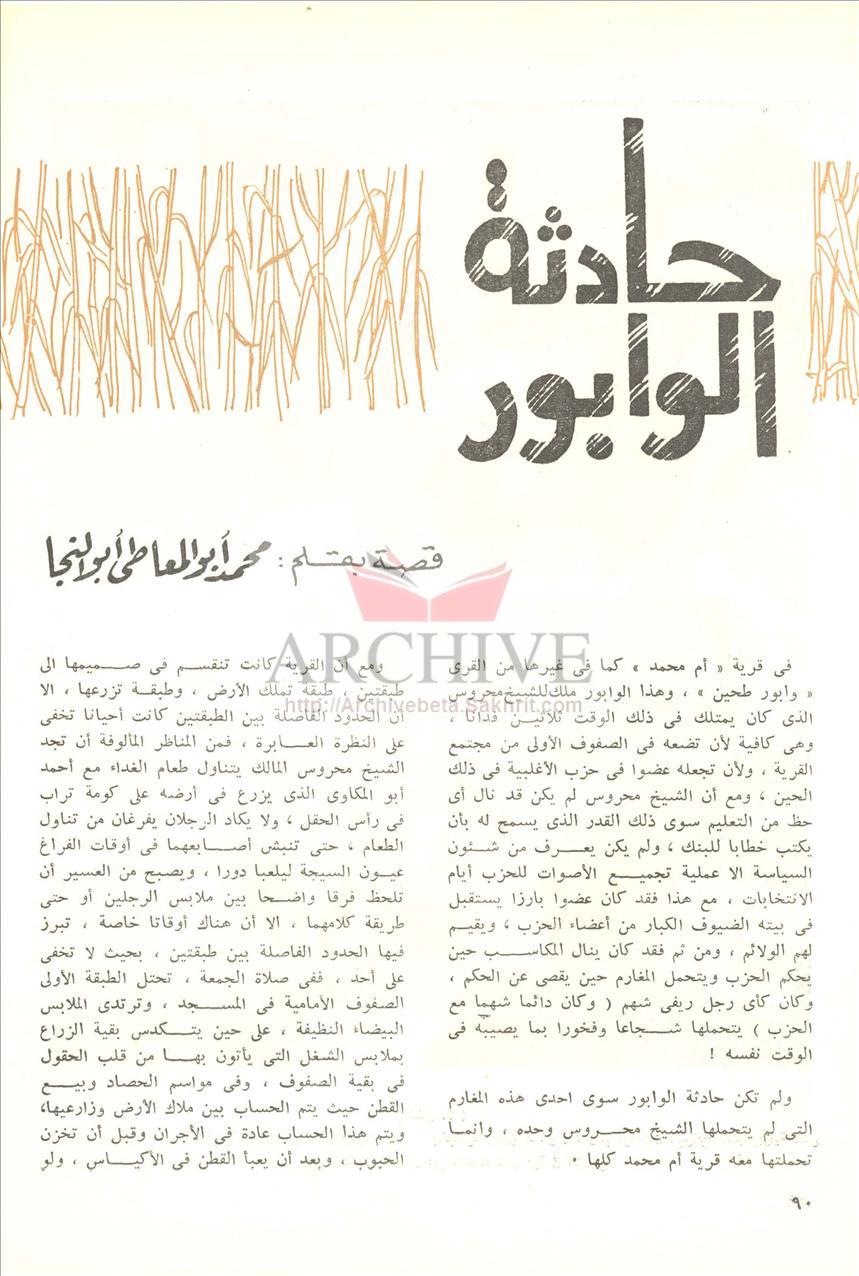 حادثة
الوابور
قصة بقلم : محمد أبو المعاطى أبو النجا
ARCHIVE
http://Archivebeta.Sakhrit.com
فى قرية « أم محمد » كما فى غيرها من القرى
« وابور طحين » ، وهذا الوابور ملك للشيخ محروس
الذى كان يمتلك فى ذلك الوقت ثلاثين فدانا ،
وهى كافية لأن تضعه فى الصفوف الأولى من مجتمع
القرية ، ولأن تجعله عضوا فى حزب الأغلبية فى ذلك
الحين ، ومع أن الشيخ محروس لم يكن قد نال أى
حظ من التعليم سوى ذلك القدر الذى يسمح له بأن
يكتب خطابا للبنك ، ولم يكن يعرف من شئون
السياسة الا عملية تجميع الأصوات للحزب أيام
الانتخابات ، مع هذا فقد كان عضوا بارزا يستقبل
فى بيته الضيوف الكبار من أعضاء الحزب ، ويقيم
لهم الولائم ، ومن ثم فقد كان ينال المكاسب حين
يحكم الحزب ويتحمل المغارم حين يقصى عن الحكم ،
وكان كأى رجل ريفى شهم ( وكان دائما شهما مع
الحزب ) يتحملها شجاعا وفخورا بما يصيبه فى
الوقت نفسه !
ولم تكن حادثة الوابور سوى احدى هذه المغارم
التى لم يتحملها الشيخ محروس وحده ، وانما
تحملتها معه قرية أم محمد كلها .
ومع أن القرية كانت تنقسم فى صميمها الى
طبقتين ، طبقة تملك الأرض ، وطبقة تزرعها ، الا
أن الحدود الفاصلة بين الطبقتين كانت أحيانا تخفى
على النظرة العابرة ، فمن المناظر المألوفة أن تجد
الشيخ محروس المالك يتناول طعام الغداء مع أحمد
أبو المكاوى الذى يزرع فى أرضه على كومة تراب
فى رأس الحقل ، ولا يكاد الرجلان يفرغان من تناول
الطعام ، حتى تنبش أصابعهما فى أوقات الفراغ
عيون السيجة ليلعبا دورا ، ويصبح من العسير أن
تلحظ فرقا واضحا بين ملابس الرجلين أو حتى
طريقة كلامهما ، الا أن هناك أوقاتا خاصة ، تبرز
فيها الحدود الفاصلة بين طبقتين ، بحيث لا تخفى
على أحد ، ففى صلاة الجمعة ، تحتل الطبقة الأولى
الصفوف الأمامية فى المسجد ، وترتدى الملابس
البيضاء النظيفة ، على حين يتكدس بقية الزراع
بملابس الشغل التى يأتون بها من قلب الحقول
فى بقية الصفوف ، وفى مواسم الحصاد وبيع
القطن حيث يتم الحساب بين ملاك الأرض وزارعيها،
ويتم هذا الحساب عادة فى الأجران وقبل أن تخزن
الحبوب ، وبعد أن يعبأ القطن فى الأكياس ، ولو
٩٠